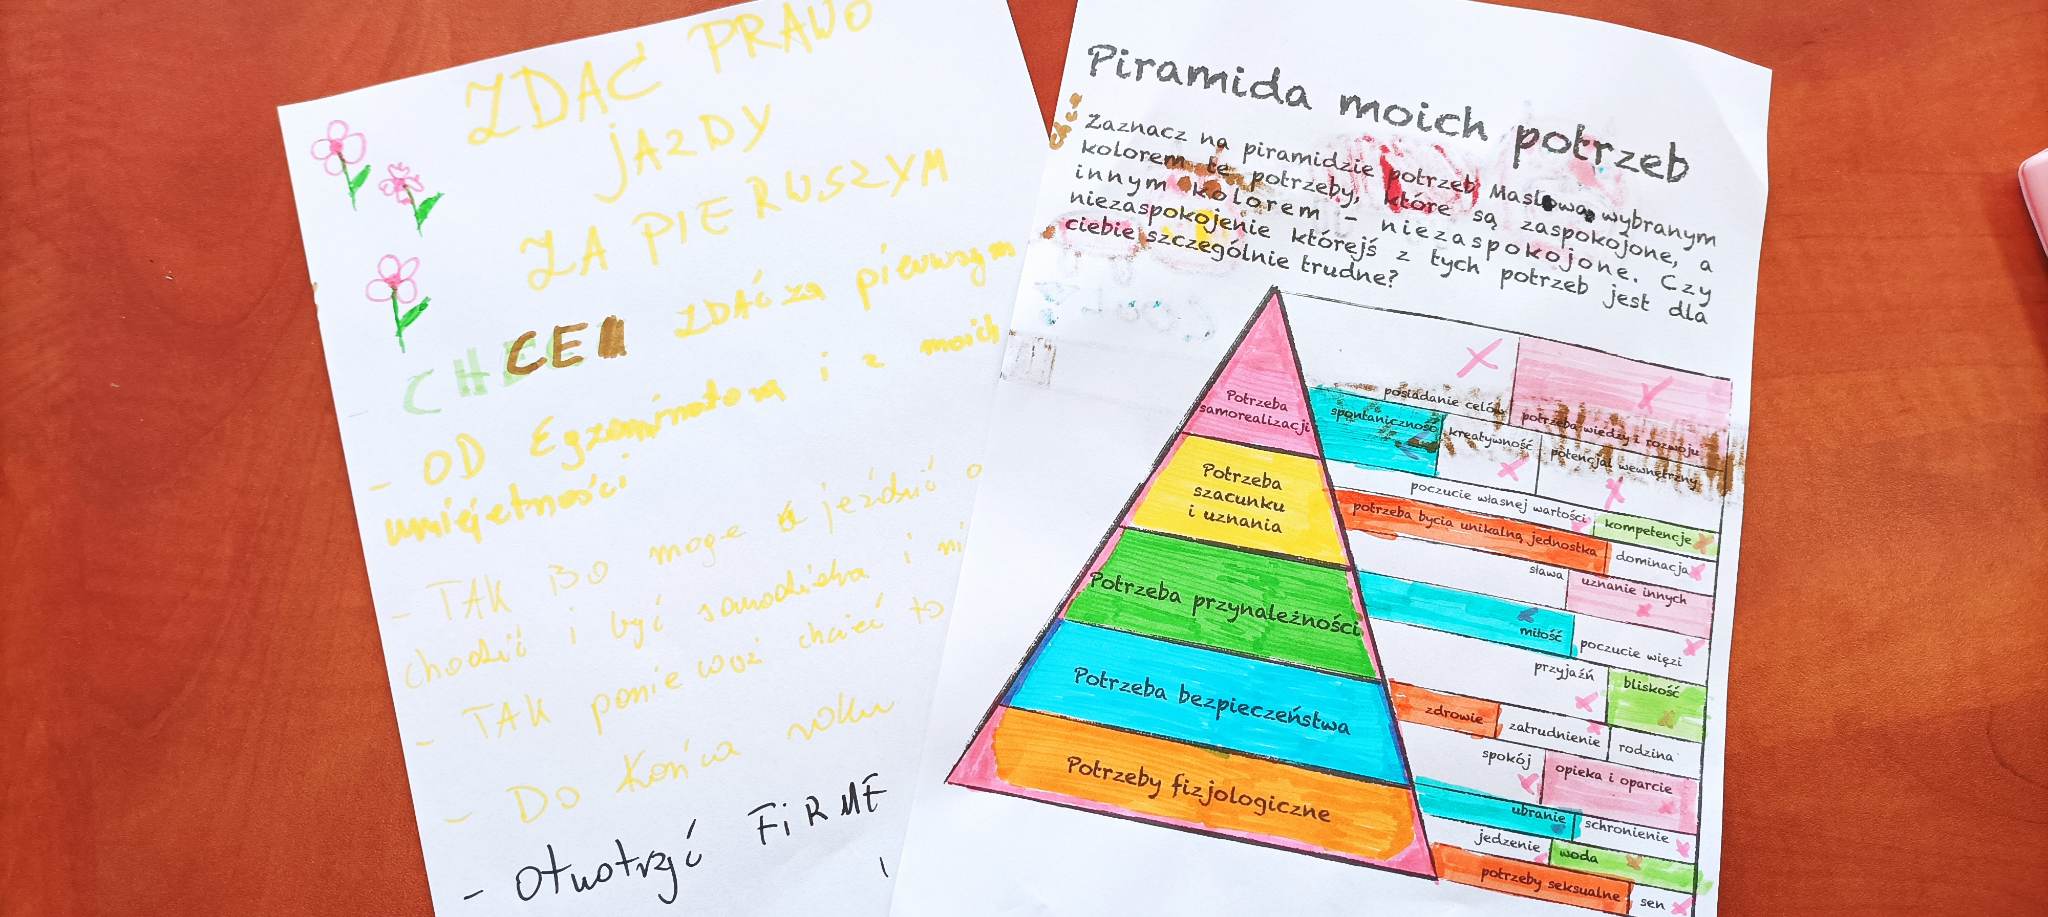 ZDAĆ PRAWO
JAZDY
ZA PIERUSZYM
CHCE ZDAĆ za pierwszym
- OD Egzaminatora i z moich
umiejętności
- TAK BO mogę jeździć
chodzić i być samodzielna i
- TAK ponieważ chcieć to
- DO Końca roku
- Otwotrzyć FiRME
Piramida moich potrzeb
Zaznacz na piramidzie potrzeb Maslowa wybranym
kolorem te potrzeby, które są zaspokojone, a
innym kolorem - niezaspokojone. Czy
niezaspokojenie którejś z tych potrzeb jest dla
ciebie szczególnie trudne?
Potrzeba
samorealizacji
Potrzeba
szacunku
i uznania
Potrzeba przynależności
Potrzeba bezpieczeństwa
Potrzeby fizjologiczne
posiadanie celów potrzeba wiedzy i rozwoju
spontaniczność kreatywność potencjał wewnętrzny
poczucie własnej wartości kompetencje
potrzeba bycia unikalną jednostką dominacja
sława uznanie innych
miłość poczucie więzi
przyjaźń bliskość
zdrowie zatrudnienie rodzina
spokój opieka i oparcie
ubranie schronienie
jedzenie woda
potrzeby seksualne sen